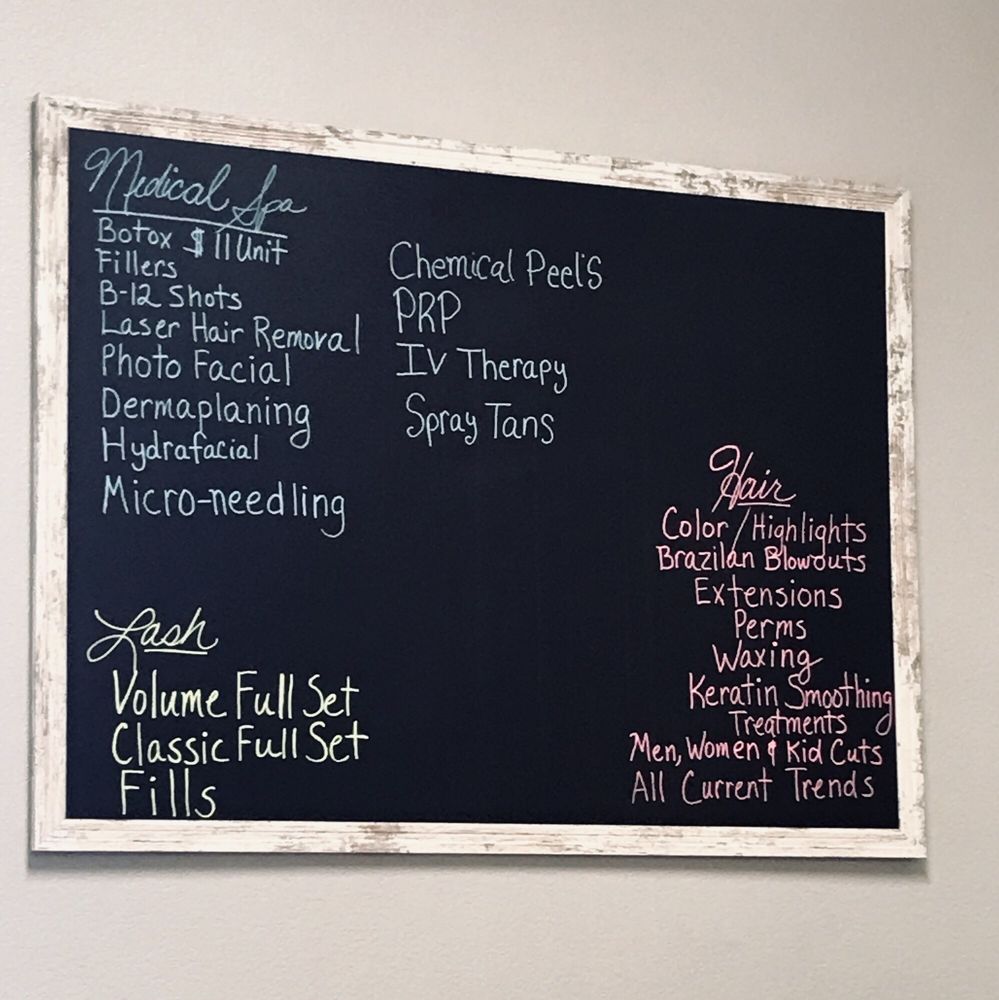 Medical Spa
Botox $11 Unit
Fillers
B-12 Shots
Laser Hair Removal
Photo Facial
Dermaplaning
Hydrafacial
Micro-needling
Chemical Peel's
PRP
IV Therapy
Spray Tans
Lash
Volume Full Set
Classic Full Set
Fills
Hair
Color / Highlights
Brazilan Blowouts
Extensions
Perms
Waxing
Keratin Smoothing
Treatments
Men, Women & Kid Cuts
All Current Trends